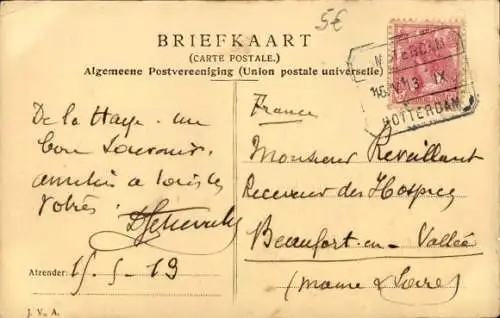 5€
BRIEFKAART
(CARTE POSTALE.)
Algemeene Postvereeniging (Union postale universelle)
AMSTERDAM
IX
ROTTERDAM
France
De la Haye. un
bon Souvenir.
amitiés à tous les
vôtres.
Monsieur Reveillant
Receveur des Hospices
Beaufort-en-Vallée
(Maine & Loire)
Afzender: 15-5-13
J. V. A.